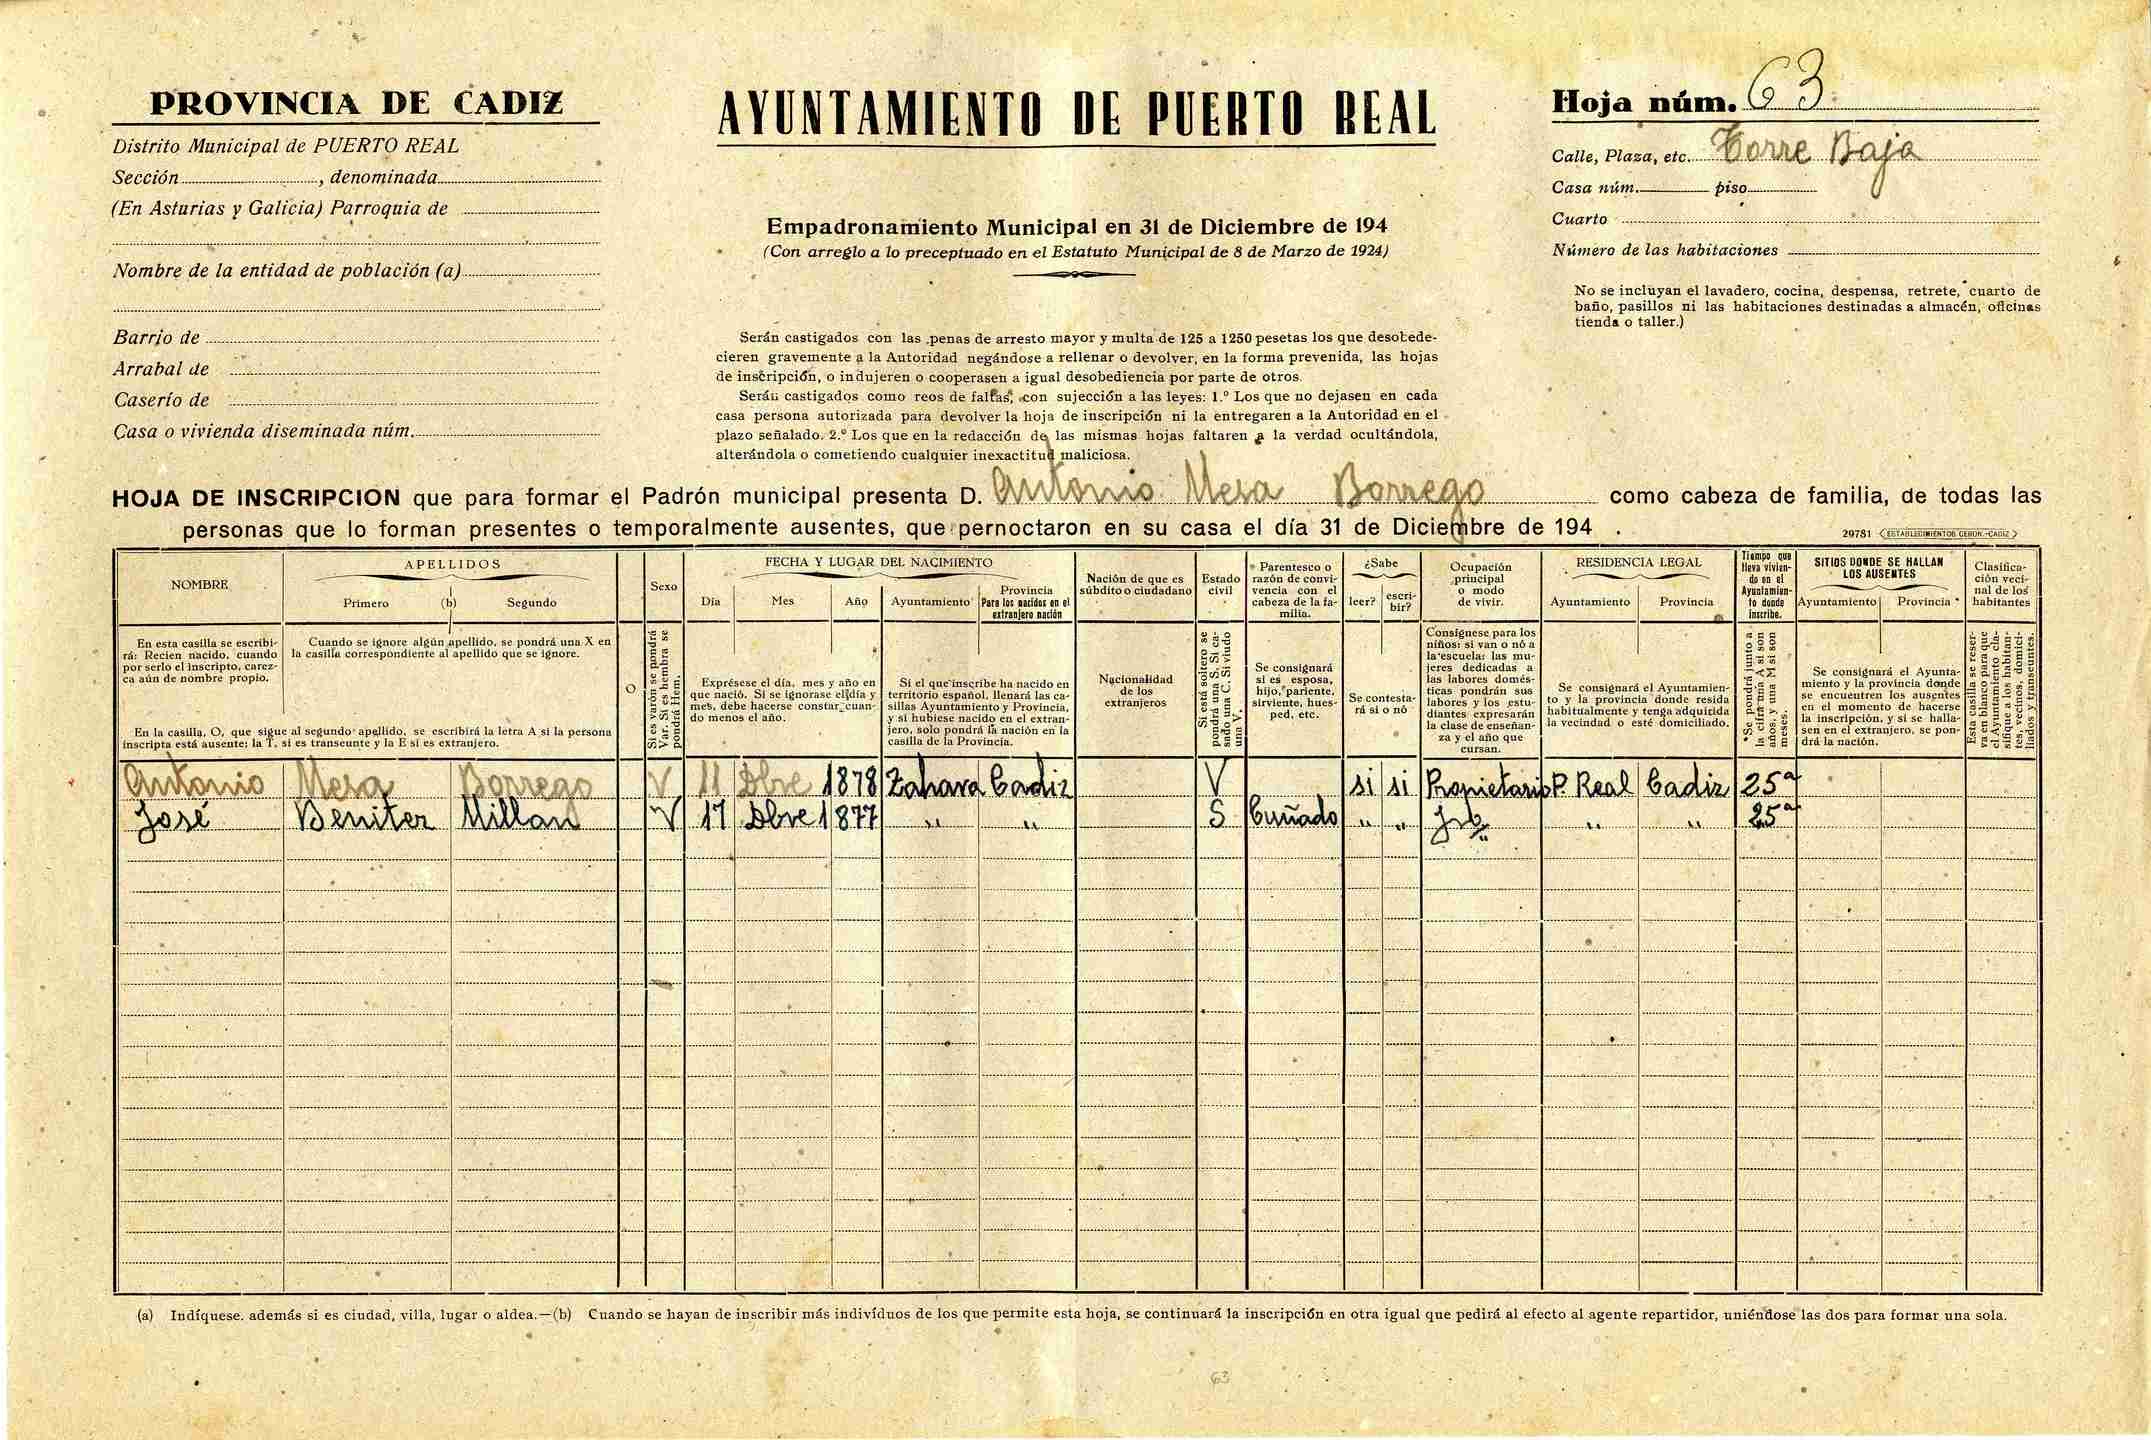 PROVINCIA DE CADIZ
Distrito Municipal de PUERTO REAL
Sección , denominada
(En Asturias y Galicia) Parroquia de
Nombre de la entidad de población (a)
Barrio de
Arrabal de
Caserío de
Casa o vivienda diseminada núm.
AYUNTAMIENTO DE PUERTO REAL
Empadronamiento Municipal en 31 de Diciembre de 194
(Con arreglo a lo preceptuado en el Estatuto Municipal de 8 de Marzo de 1924)
Serán castigados con las penas de arresto mayor y multa de 125 a 1250 pesetas los que desobede-
cieren gravemente a la Autoridad negándose a rellenar o devolver, en la forma prevenida, las hojas
de inscripción, o indujeren o cooperasen a igual desobediencia por parte de otros.
Serán castigados como reos de faltas, con sujección a las leyes: 1.º Los que no dejasen en cada
casa persona autorizada para devolver la hoja de inscripción ni la entregaren a la Autoridad en el
plazo señalado. 2.º Los que en la redacción de las mismas hojas faltaren a la verdad ocultándola,
alterándola o cometiendo cualquier inexactitud maliciosa.
Hoja núm. 63
Calle, Plaza, etc. Torre Baja
Casa núm. piso
Cuarto
Número de las habitaciones
No se incluyan el lavadero, cocina, despensa, retrete, cuarto de
baño, pasillos ni las habitaciones destinadas a almacén, oficinas
tienda o taller.)
HOJA DE INSCRIPCION que para formar el Padrón municipal presenta D. Antonio Mesa Borrego como cabeza de familia, de todas las
personas que lo forman presentes o temporalmente ausentes, que pernoctaron en su casa el día 31 de Diciembre de 194 .
29781 ESTABLECIMIENTOS CERON.-CADIZ
NOMBRE
En esta casilla se escribi-
rá: Recien nacido, cuando
por serlo el inscripto, carez-
ca aún de nombre propio.
APELLIDOS
Primero (b) Segundo
Cuando se ignore algún apellido, se pondrá una X en
la casilla correspondiente al apellido que se ignore.
En la casilla, O, que sigue al segundo apellido, se escribirá la letra A si la persona
inscripta está ausente; la T, si es transeunte y la E si es extranjero.
O
Sexo
Si es varón se pondrá
Var. Si es hembra se
pondrá Hem.
FECHA Y LUGAR DEL NACIMIENTO
Día Mes Año Ayuntamiento Provincia
Para los nacidos en el
extranjero nación
Exprésese el día, mes y año en
que nació. Si se ignorase el día y
mes, debe hacerse constar cuan-
do menos el año.
Si el que inscribe ha nacido en
territorio español, llenará las ca-
sillas Ayuntamiento y Provincia,
y si hubiese nacido en el extran-
jero, solo pondrá la nación en la
casilla de la Provincia.
Nación de que es
súbdito o ciudadano
Nacionalidad
de los
extranjeros
Estado
civil
Si está soltero se
pondrá una S. Si ca-
sado una C. Si viudo
una V.
Parentesco o
razón de convi-
vencia con el
cabeza de la fa-
milia.
Se consignará
si es esposa,
hijo, pariente,
sirviente, hues-
ped, etc.
¿Sabe
leer? escri-
bir?
Se contesta-
rá sí o nó
Ocupación
principal
o modo
de vivir.
Consígnese para los
niños: si van o nó a
la escuela: las mu-
jeres dedicadas a
las labores domés-
ticas pondrán sus
labores y los estu-
diantes expresarán
la clase de enseñan-
za y el año que
cursan.
RESIDENCIA LEGAL
Ayuntamiento Provincia
Se consignará el Ayuntamien-
to y la provincia donde resida
habitualmente y tenga adquirida
la vecindad o esté domiciliado.
Tiempo que
lleva vivien-
do en el
Ayuntamien-
to donde
inscribe.
Se pondrá junto a
la cifra una A si son
años, y una M si son
meses.
SITIOS DONDE SE HALLAN
LOS AUSENTES
Ayuntamiento Provincia
Se consignará el Ayunta-
miento y la provincia donde
se encuentren los ausentes
en el momento de hacerse
la inscripción, y si se halla-
sen en el extranjero, se pon-
drá la nación.
Clasifica-
ción veci-
nal de los
habitantes
Esta casilla se reser-
va en blanco para que
el Ayuntamiento cla-
sifique a los habitan-
tes, vecinos, domici-
liados y transeuntes.
Antonio Mesa Borrego V 11 Dbre 1878 Zahara Cadiz V si si Propietario P. Real Cadiz 25 a
José Beniter Millan V 17 Dbre 1877 " " S Cuñado " " Jrb " " 25 a
(a) Indíquese. además si es ciudad, villa, lugar o aldea.—(b) Cuando se hayan de inscribir más indivíduos de los que permite esta hoja, se continuará la inscripción en otra igual que pedirá al efecto al agente repartidor, uniéndose las dos para formar una sola.
63